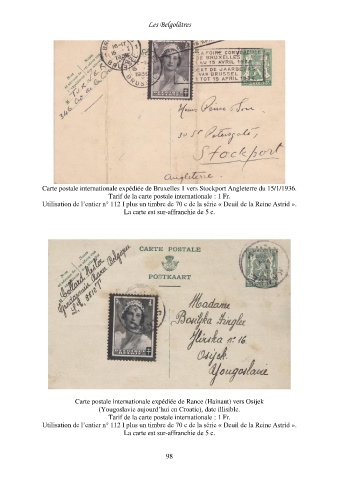 Les Belgolâtres
BRUXELLES
1936
LA FOIRE COMMERCIALE
DE BRUXELLES
AU 15 AVRIL 1936
VAN BRUSSEL
TOT 15 APRIL 1936
Stockport
Angleterre
Carte postale internationale expédiée de Bruxelles 1 vers Stockport Angleterre du 15/1/1936.
Tarif de la carte postale internationale : 1 Fr.
Utilisation de l'entier n° 112 I plus un timbre de 70 c de la série « Deuil de la Reine Astrid ».
La carte est sur-affranchie de 5 c.
CARTE POSTALE
POSTKAART
Rance Belgique
Madame
Hlinska n: 16
Osijek
Yougoslavie
Carte postale internationale expédiée de Rance (Hainaut) vers Osijek
(Yougoslavie aujourd'hui en Croatie), date illisible.
Tarif de la carte postale internationale : 1 Fr.
Utilisation de l'entier n° 112 I plus un timbre de 70 c de la série « Deuil de la Reine Astrid ».
La carte est sur-affranchie de 5 c.
98